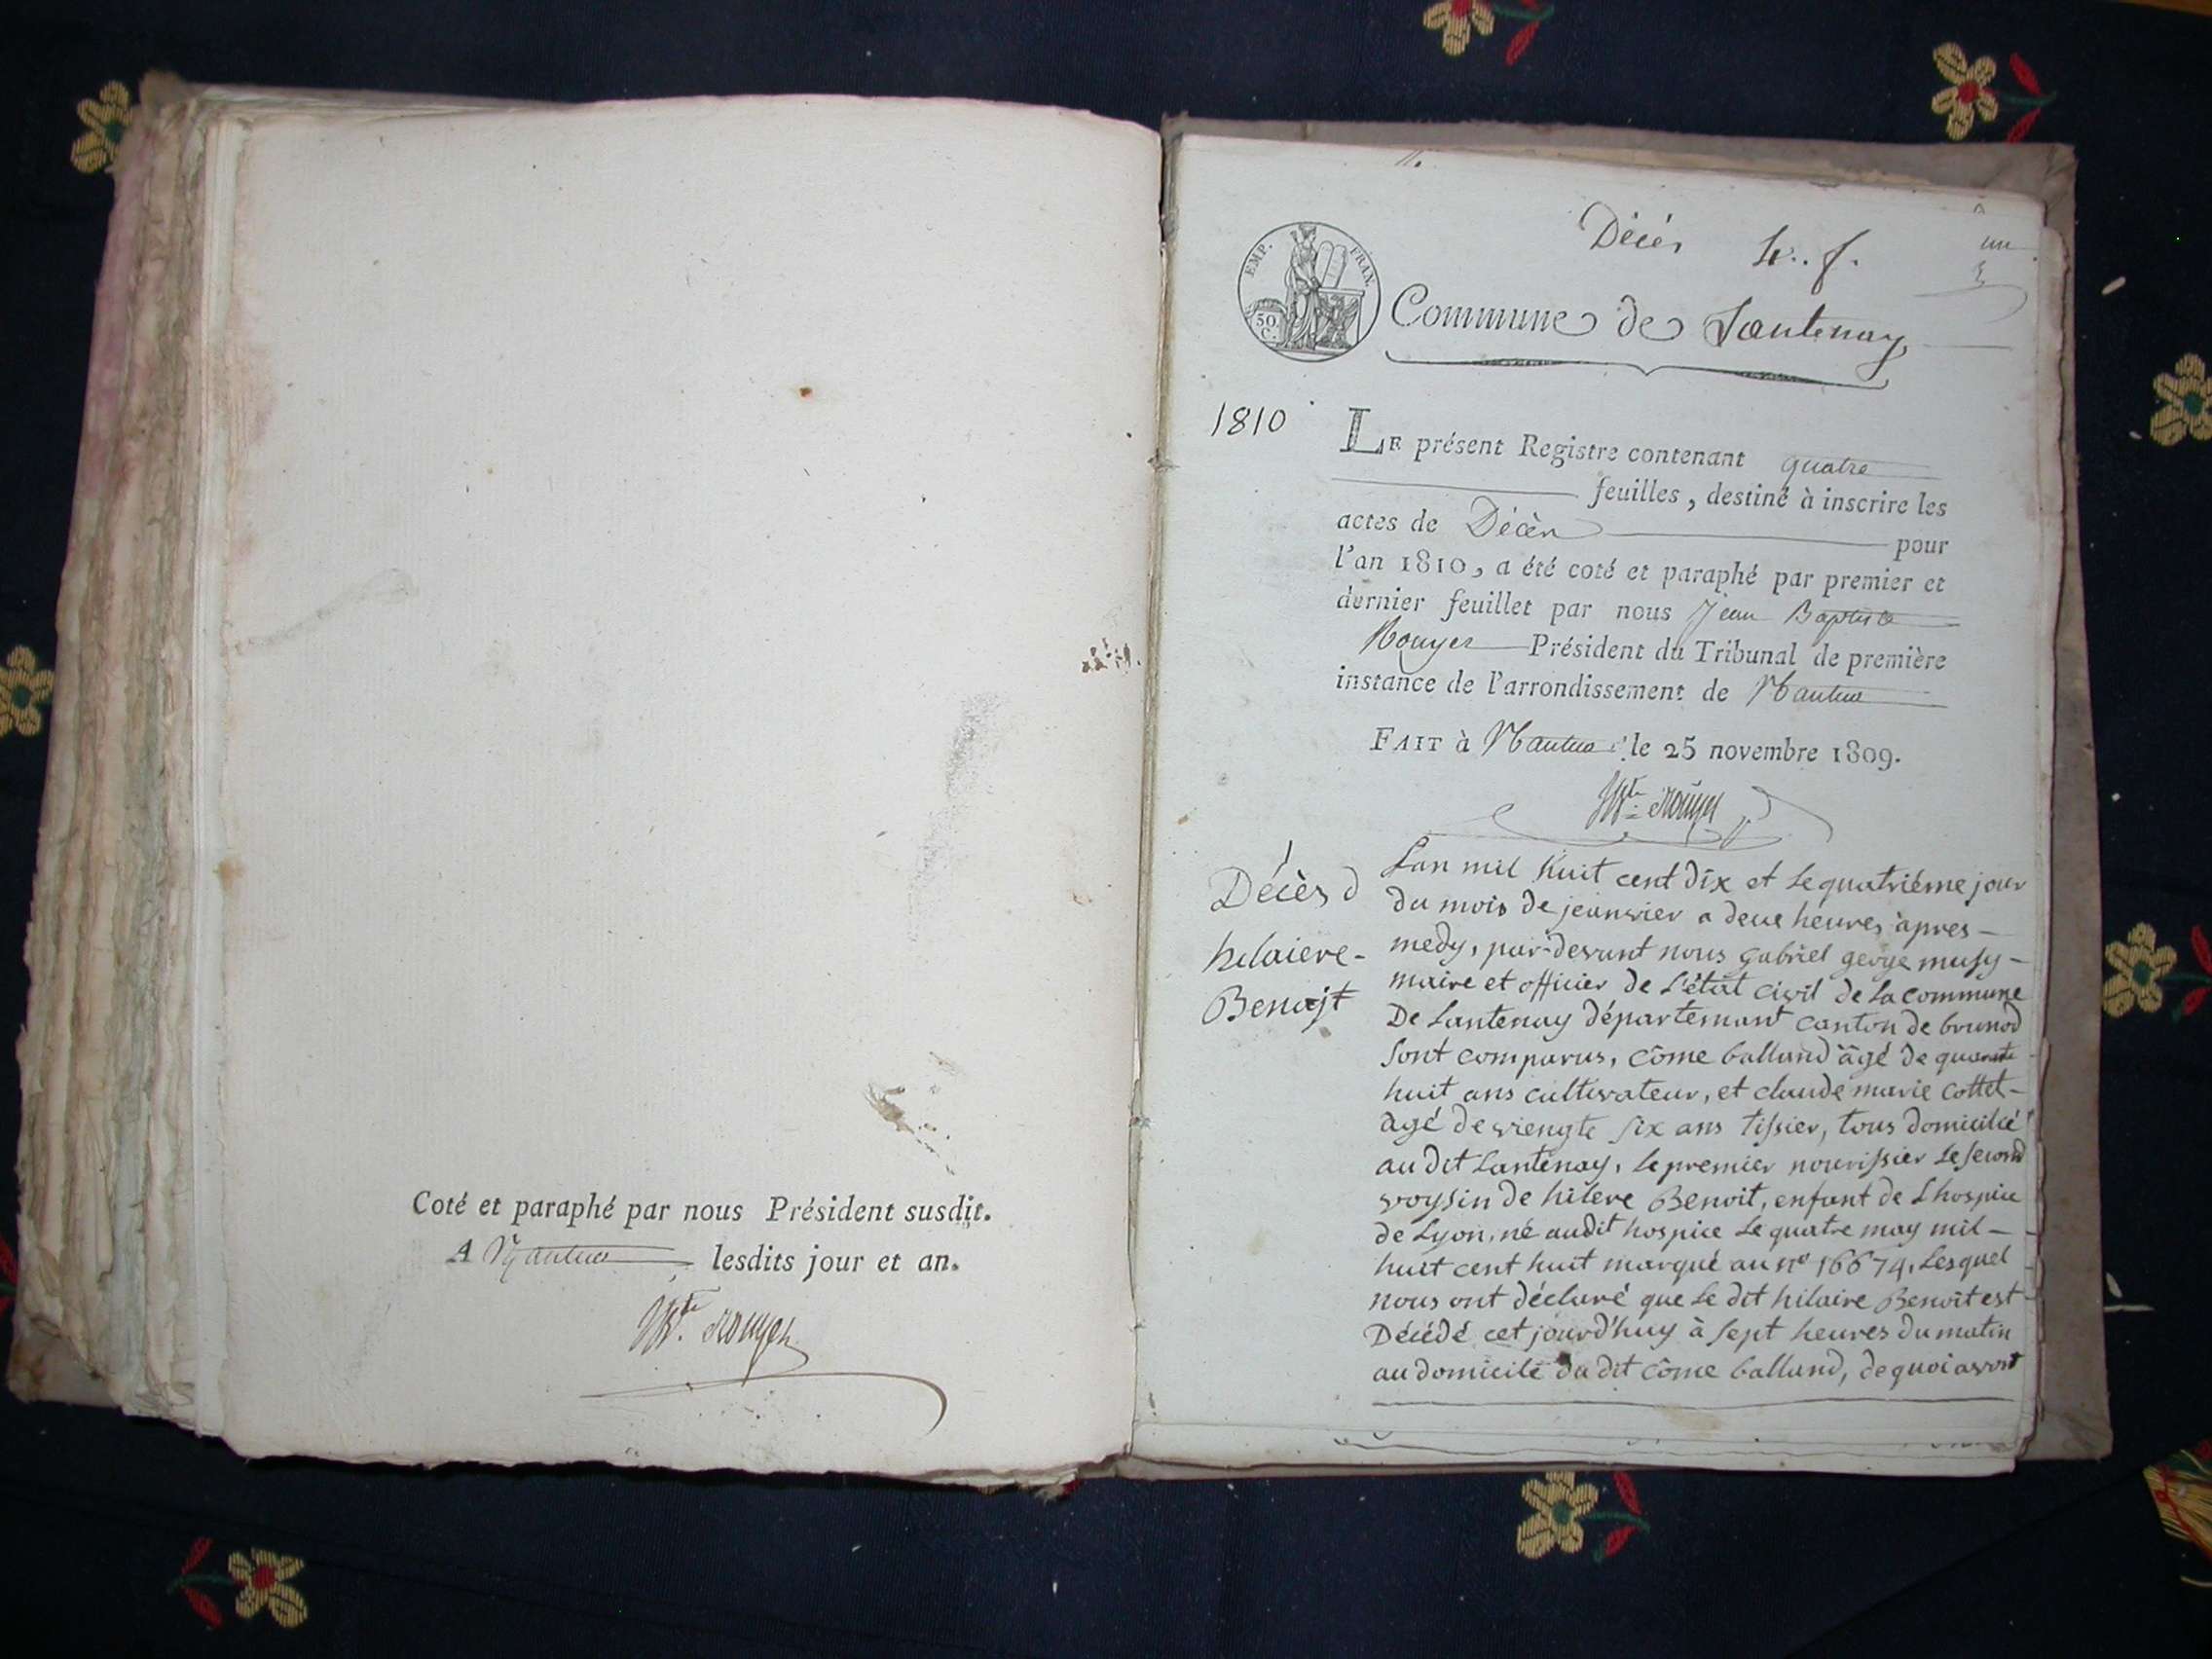 Coté et paraphé par nous Président susdit.
A Nantua lesdits jour et an.
Jn Bte Rouyer
un
Décès 4. f.
EMP. FRAN.
50 C.
Commune de Lantenay
1810
LE présent Registre contenant quatre
feuilles, destiné à inscrire les
actes de Décès pour
l'an 1810, a été coté et paraphé par premier et
dernier feuillet par nous Jean Baptiste
Rouyer Président du Tribunal de première
instance de l'arrondissement de Nantua
FAIT à Nantua le 25 novembre 1809.
Rouyer
Décès d
hilaiere-
Benojt
Lan mil huit cent dix et le quatriéme jour
du mois de jeanvier a deue heures apres-
medy, par-devant nous gabriel george musy-
maire et officier de L'état civil de La commune
De Lantenay département canton de brunod
sont comparus, côme balland âgé de quarante
huit ans cultivateur, et claude marie cottet-
agé de viengte six ans tissier, tous domicilié
au dit Lantenay, le premier nourissier le second
voysin de hilere Benoit, enfant de Lhospice
de Lyon, né audit hospice Le quatre may mil-
huit cent huit marqué au n° 16674, Lesquel
nous ont déclaré que le dit hilaire Benoit est
Décédé cet jourd'huy à sept heures du matin
au domicile du dit côme balland, de quoi avont